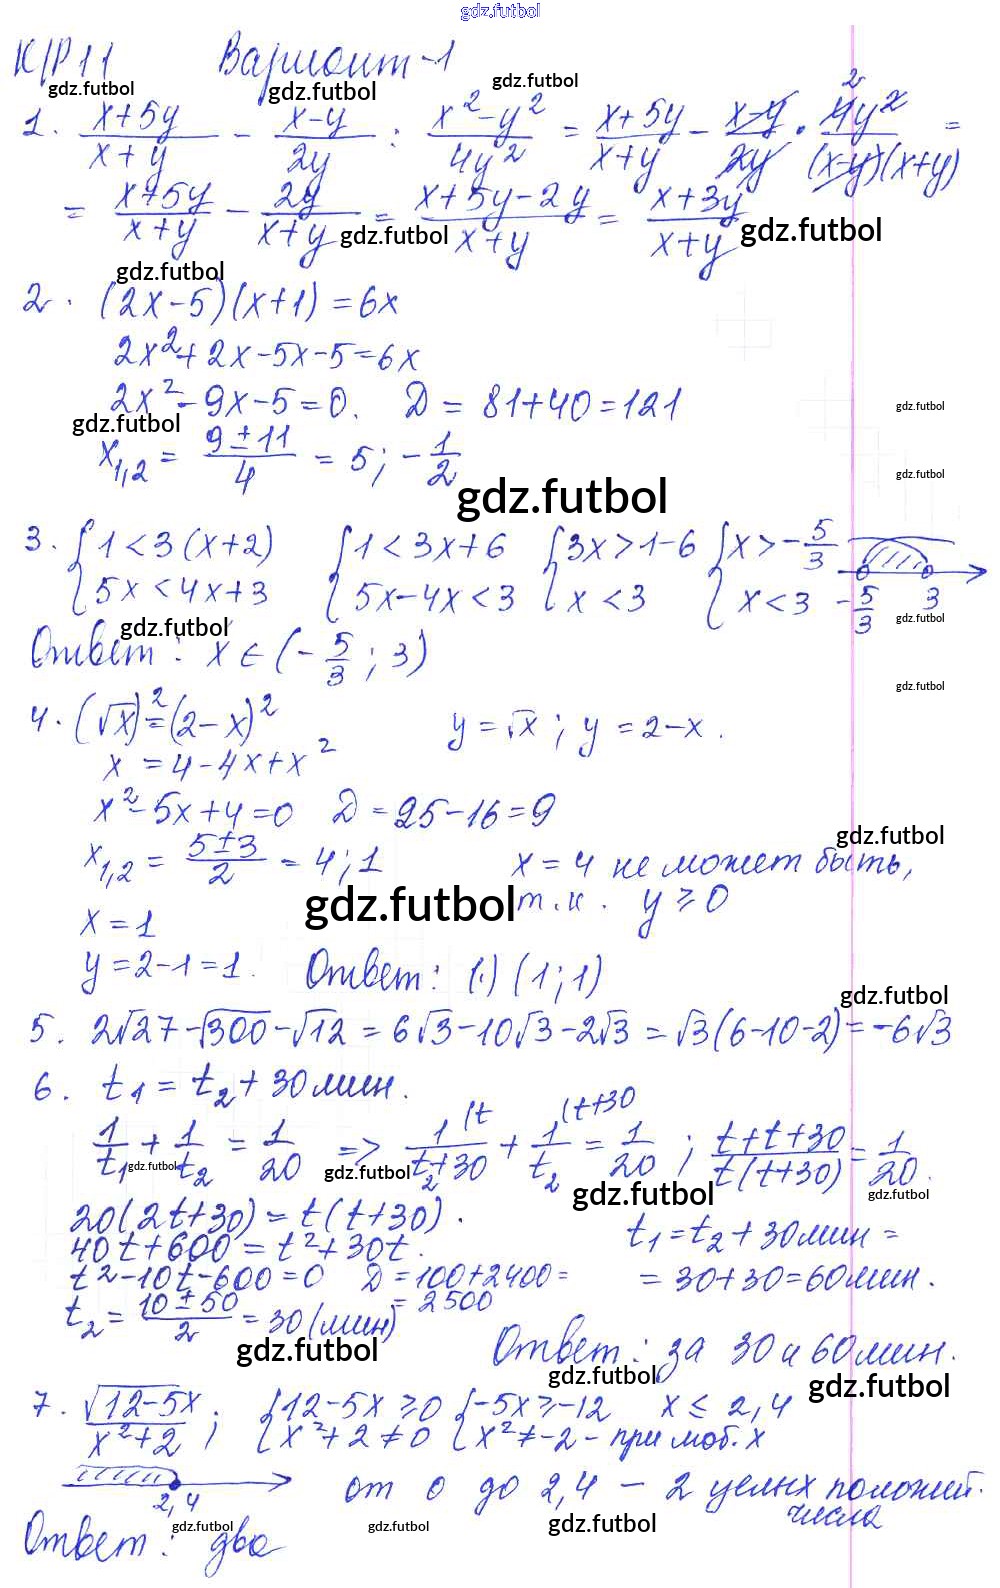 gdz.futbol
К/Р 11 Вариант-1
gdz.futbol gdz.futbol gdz.futbol
1. (x+5y)/(x+y) - (x-y)/(2y) : (x²-y²)/(4y²) = (x+5y)/(x+y) - (x-y)/(2y) · (4y²)/((x-y)(x+y)) = 2
= (x+5y)/(x+y) - (2y)/(x+y) = (x+5y-2y)/(x+y) = (x+3y)/(x+y)
gdz.futbol gdz.futbol
gdz.futbol
2. (2x-5)(x+1) = 6x
2x²+2x-5x-5=6x
2x²-9x-5=0. Д = 81+40=121
gdz.futbol gdz.futbol
x₁,₂ = (9±11)/4 = 5; -1/2
gdz.futbol gdz.futbol
3. {1<3(x+2) {1<3x+6 {3x>1-6 {x>-5/3
{5x<4x+3 {5x-4x<3 {x<3 {x<3 -5/3 3
gdz.futbol gdz.futbol
Ответ: x∈(-5/3; 3)
gdz.futbol
4. (√x)²=(2-x)² y=√x; y=2-x.
x=4-4x+x²
x²-5x+4=0 Д=25-16=9
gdz.futbol
x₁,₂ = (5±3)/2 = 4; 1 x=4 не может быть,
gdz.futbol
x=1 т.к. y≥0
y=2-1=1. Ответ: (·) (1; 1)
gdz.futbol
5. 2√27-√300-√12=6√3-10√3-2√3=√3(6-10-2)=-6√3
6. t₁=t₂+30мин.
1/t₁ + 1/t₂ = 1/20 => 1/(t₂+30) (t + 1/t₂ (t+30 = 1/20; (t+t+30)/(t(t+30)) = 1/20.
gdz.futbol gdz.futbol gdz.futbol
20(2t+30)=t(t+30). t₁=t₂+30мин=
40t+600=t²+30t.
t²-10t-600=0 Д=100+2400= =30+30=60мин.
t₂=(10±50)/2=30(мин) =2500
gdz.futbol
Ответ: за 30 и 60мин.
gdz.futbol gdz.futbol
7. √(12-5x)/(x²+2); {12-5x≥0 {-5x≥-12 x≤2,4
{x²+2≠0 {x²≠-2 - при люб. x
2,4 от 0 до 2,4 - 2 целых положит.
числа
gdz.futbol gdz.futbol gdz.futbol
Ответ: два